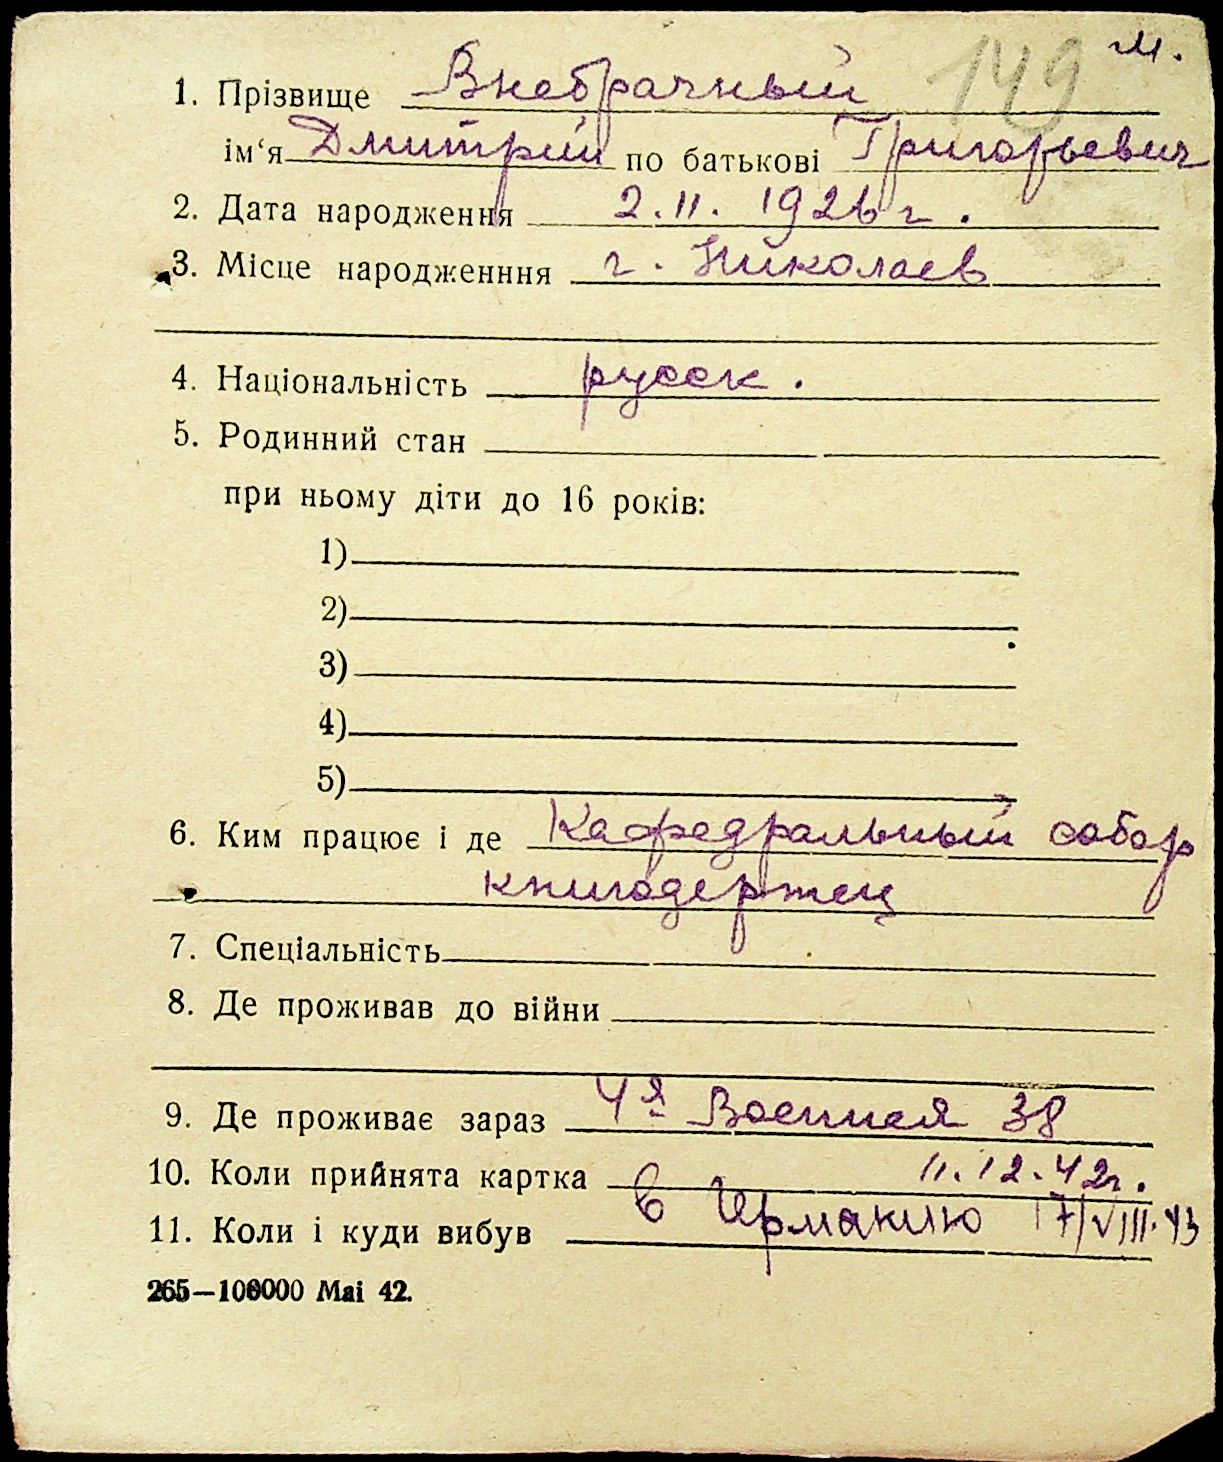 149 м.
1. Прізвище Внебрачный
ім‘я Дмитрий по батькові Григорьевич
2. Дата народження 2.II. 1926 г.
3. Місце народженння г. Николаев
4. Національність русск.
5. Родинний стан
при ньому діти до 16 років:
1)
2)
3)
4)
5)
6. Ким працює і де Кафедральный собор
книгодержец
7. Спеціальність
8. Де проживав до війни
9. Де проживає зараз 4я Военная 38
10. Коли прийнята картка 11.12.42г.
11. Коли і куди вибув в Германию 17/VIII.43
265—100000 Mai 42.